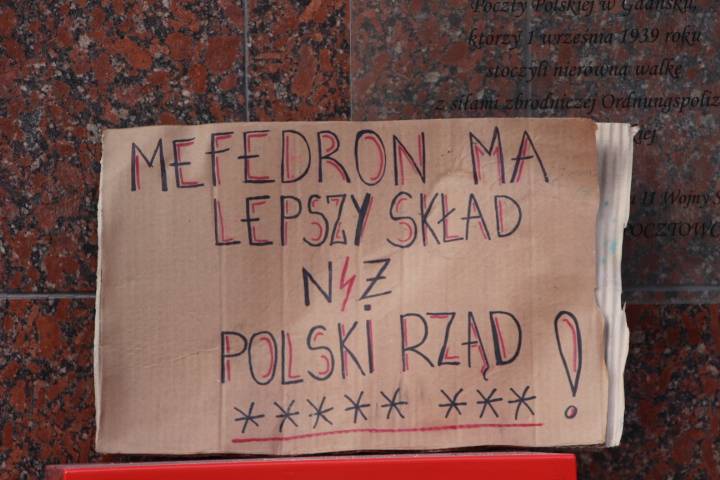 Poczty Polskiej w Gdańsku,
którzy 1 września 1939 roku
stoczyli nierówną walkę
z siłami zbrodniczej Ordnungspoliz
II Wojny S
POCZTOWC
MEFEDRON MA
LEPSZY SKŁAD
NIŻ
POLSKI RZĄD!
***** ***